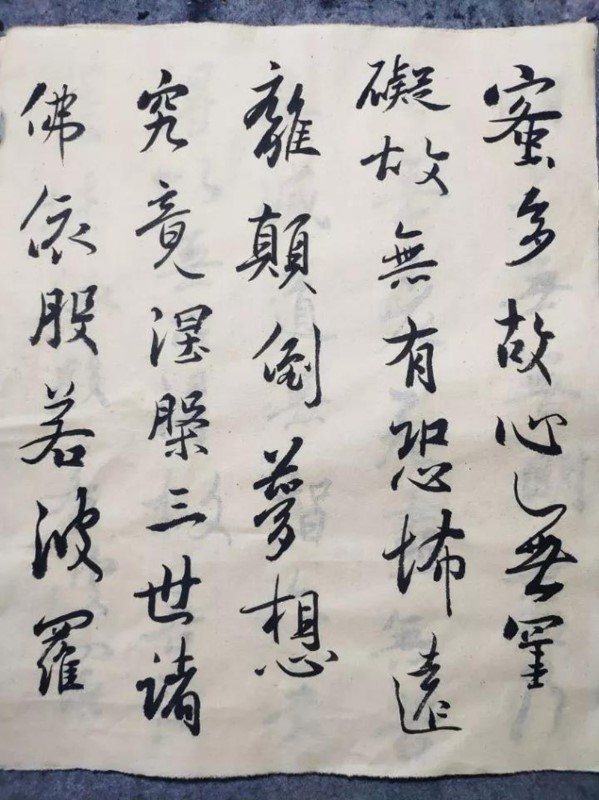 蜜多故心无罣
礙故無有恐怖遠
離顛倒夢想
究竟涅槃三世諸
佛依般若波羅